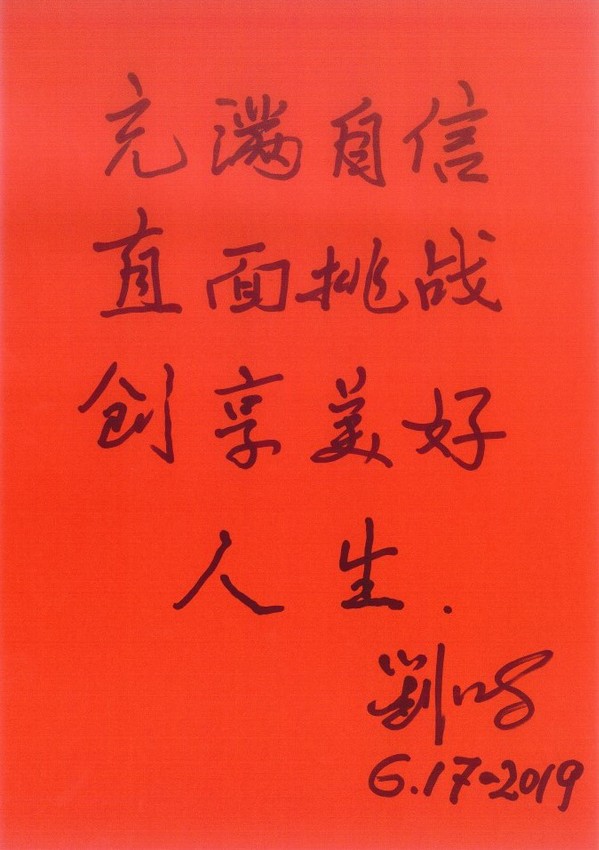 充满自信
直面挑战
创享美好
人生.
6.17-2019